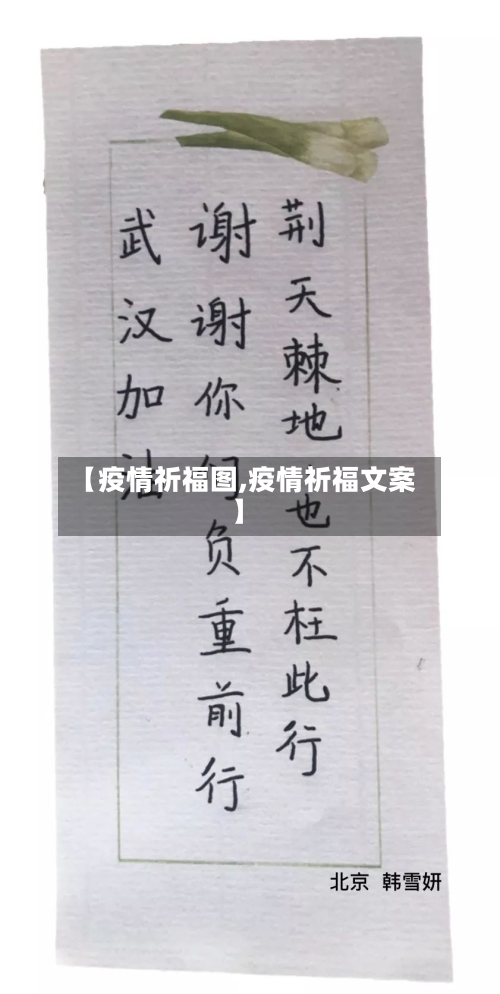 荆天棘地也不枉此行
谢谢你们负重前行
武汉加油
【疫情祈福图,疫情祈福文案
】
北京 韩雪妍